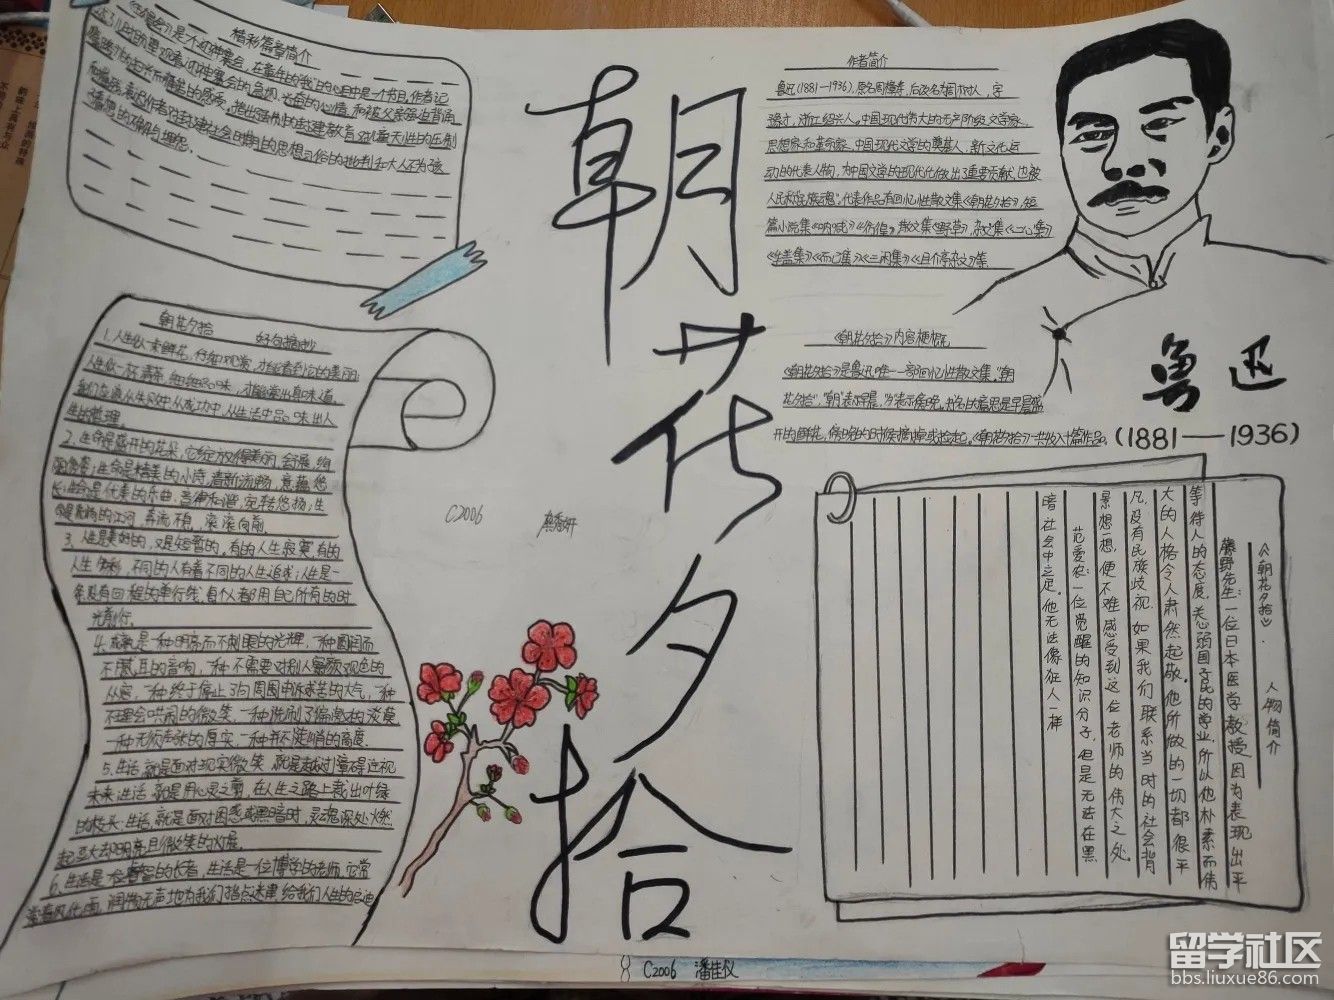 精彩篇章简介
朝花夕拾
好句摘抄
1.人生似一束鲜花,仔细观赏,才能看到它的美丽;
人生似一杯清茶,细细品味,才能尝出真味道。
我们应该从失败中、从成功中、从生活中品味出人
生的哲理。
2.生命是盛开的花朵,它绽放得美丽,舒展,绚
丽多姿;生命是精美的小诗,清新流畅,意蕴悠
长;生命是优美的乐曲,音律和谐,宛转悠扬;生
命是流淌的江河,奔流不息,滚滚向前
3.人生是美好的,又是短暂的。有的人生寂寞,有的
人生多彩,不同的人有着不同的人生追求;人生是一
条没有回程的单行线,每个人都用自己所有的时
光前行。
4.成熟是一种明亮而不刺眼的光辉,一种圆润而
不腻耳的音响,一种不需要对别人察颜观色的
从容,一种终于停止了向周围申诉求告的大气,一种
不理会哄闹的微笑,一种洗刷了偏激的淡漠
一种无须声张的厚实,一种并不陡峭的高度.
5.生活,就是面对现实微笑,就是越过障碍注视
未来;生活,就是用心灵之剪,在人生之路上裁出叶绿
的枝头;生活,就是面对困惑或黑暗时,灵魂深处燃
起豆大却明亮且微笑的灯展
6.生活是一位睿智的长者,生活是一位博学的老师,它常
常春风化雨,润物无声地为我们指点迷津,给我们人生的启迪
朝花夕拾
C2006
作者简介
鲁迅(1881—1936),原名周樟寿,后改名周树人,字
豫才,浙江绍兴人。中国现代伟大的无产阶级文学家、
思想家和革命家,中国现代文学的奠基人,新文化运
动的代表人物,为中国文学的现代化做出了重要贡献,也被
人民称“民族魂”。代表作品有回忆性散文集《朝花夕拾》,短
篇小说集《呐喊》《彷徨》,散文集《野草》,杂文集《二心集》
《华盖集》《而已集》《三闲集》《且介亭杂文》等
《朝花夕拾》内容梗概
《朝花夕拾》是鲁迅唯一一部回忆性散文集,“朝
花夕拾”,“朝”表示早晨,“夕”表示傍晚,书名的意思是早晨盛
开的鲜花,傍晚的时候摘掉或捡起。《朝花夕拾》一共收入十篇作品。
鲁迅
(1881—1936)
《朝花夕拾》. 人物简介
藤野先生:一位日本医学教授,因为表现出平
等待人的态度,关心弱国子民的学业,所以他朴素而伟
大的人格令人肃然起敬。他所做的一切都很平
凡,没有民族歧视.如果我们联系当时的社会背
景想一想,便不难感受到这位老师的伟大之处
范爱农:一位觉醒的知识分子,但是无法在黑
暗社会中立足。他无法像狂人一样
C2006 潘佳仪
留学社区
bbs.liuxue86.com